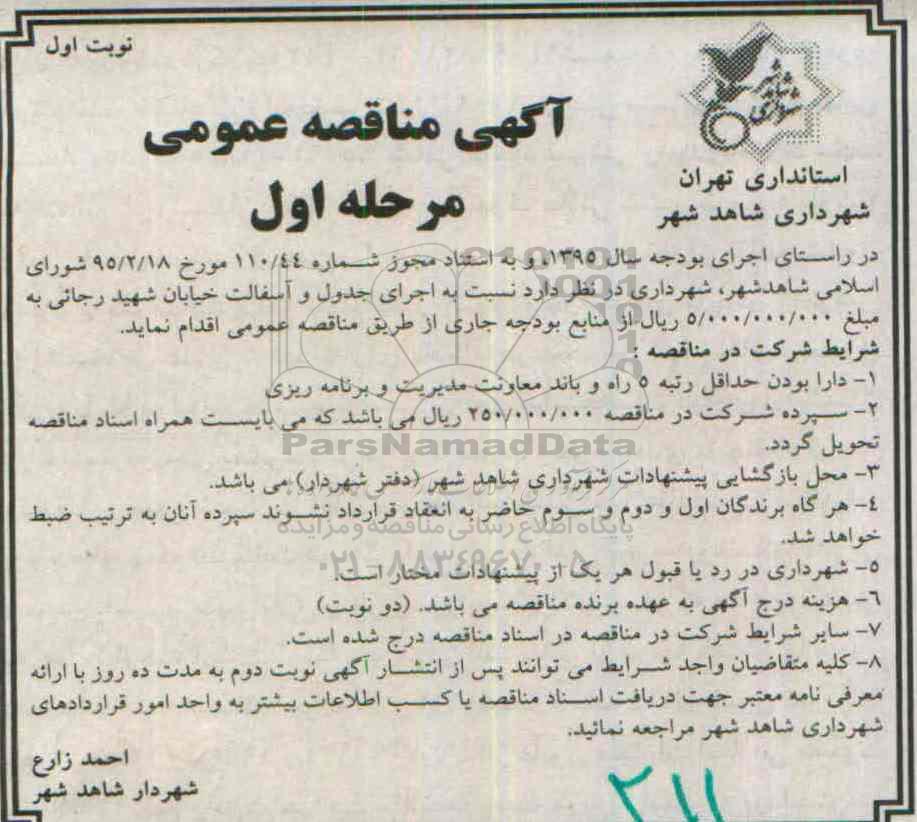 نوبت اول
شهرداری
شاهد
شهر
آگهی مناقصه عمومی
مرحله اول
استانداری تهران
شهرداری شاهد شهر
در راستای اجرای بودجه سال ۱۳۹۵، و به استناد مجوز شماره ۱۱۰/۴۴ مورخ ۹۵/۲/۱۸ شورای
اسلامی شاهدشهر، شهرداری در نظر دارد نسبت به اجرای جدول و آسفالت خیابان شهید رجائی به
مبلغ ۵/۰۰۰/۰۰۰/۰۰۰ ریال از منابع بودجه جاری از طریق مناقصه عمومی اقدام نماید.
شرایط شرکت در مناقصه :
۱- دارا بودن حداقل رتبه ۵ راه و باند معاونت مدیریت و برنامه ریزی
۲- سپرده شرکت در مناقصه ۲۵۰/۰۰۰/۰۰۰ ریال می باشد که می بایست همراه اسناد مناقصه
تحویل گردد.
ParsNamadData
۳- محل بازگشایی پیشنهادات شهرداری شاهد شهر (دفتر شهردار) می باشد.
۴- هر گاه برندگان اول و دوم و سوم حاضر به انعقاد قرارداد نشوند سپرده آنان به ترتیب ضبط
خواهد شد.
پایگاه اطلاع رسانی مناقصه و مزایده
۰۲۱-۸۸۳۴۹۶۷۰-۵
۵- شهرداری در رد یا قبول هر یک از پیشنهادات مختار است.
۶- هزینه درج آگهی به عهده برنده مناقصه می باشد. (دو نوبت)
۷- سایر شرایط شرکت در مناقصه در اسناد مناقصه درج شده است.
۸- کلیه متقاضیان واجد شرایط می توانند پس از انتشار آگهی نوبت دوم به مدت ده روز با ارائه
معرفی نامه معتبر جهت دریافت اسناد مناقصه یا کسب اطلاعات بیشتر به واحد امور قراردادهای
شهرداری شاهد شهر مراجعه نمائید.
احمد زارع
شهردار شاهد شهر
۲۱۱